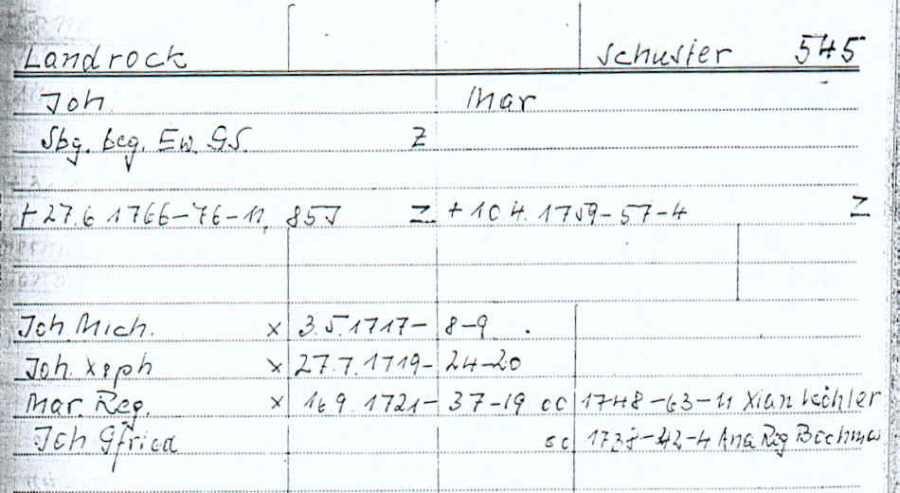 Landrock Schuster 545
Joh. Mar
Sbg. beg. Ew. GS. Z
+ 27.6 1766-76-11, 85J Z + 10 4. 1759-57-4 Z
Joh. Mich. x 3.5.1717- 8-9 .
Joh. Xsph x 27.7.1719- 24-20
Mar. Reg. x 16 9. 1721- 37-19 cc 1748-63-11 Xian Köhler
Joh Gfried cc 1738-42-4 Ana Reg